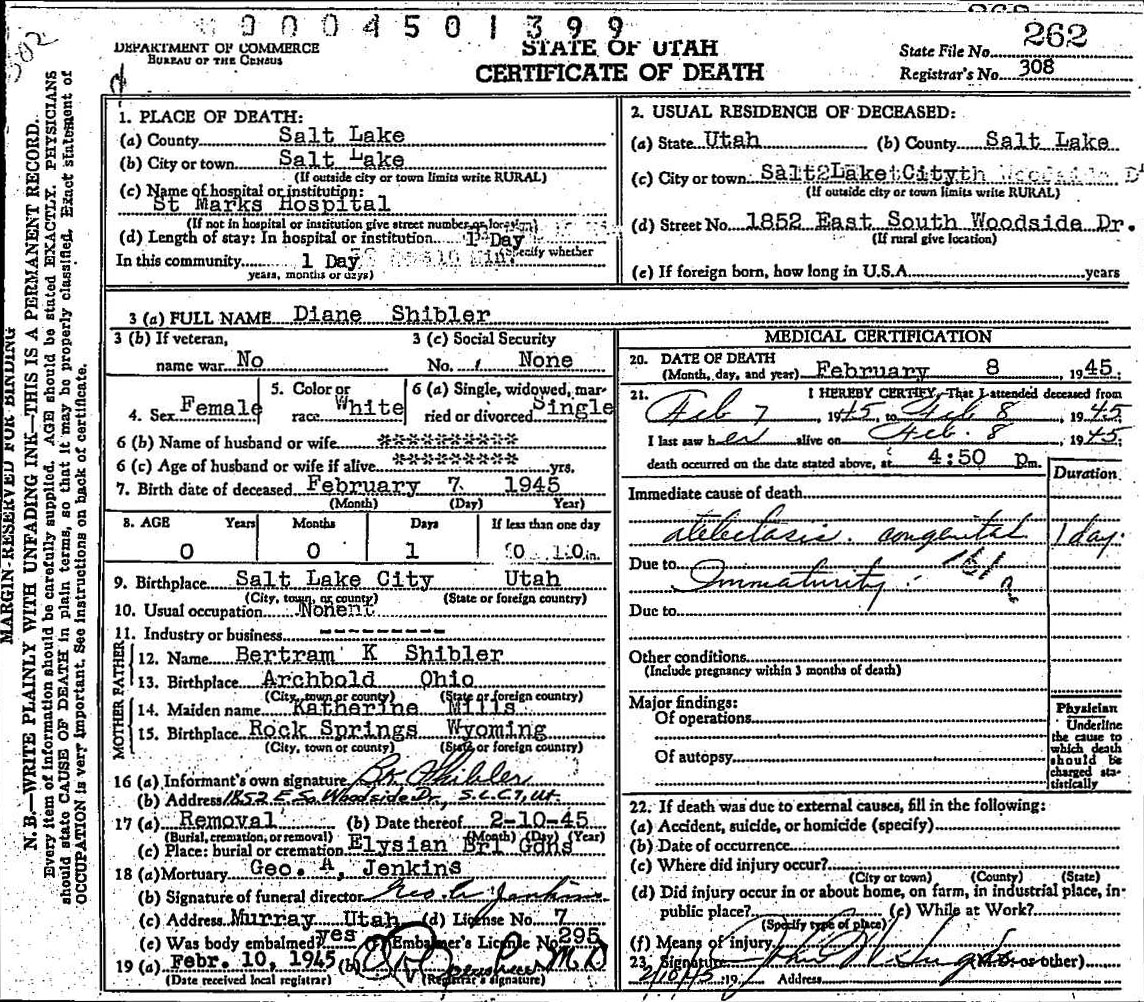 0004501399
262
302
DEPARTMENT OF COMMERCE
BUREAU OF THE CENSUS
STATE OF UTAH
CERTIFICATE OF DEATH
State File No. 262
Registrar's No. 308
MARGIN-RESERVED FOR BINDING
N. B.—WRITE PLAINLY WITH UNFADING INK—THIS IS A PERMANENT RECORD.
Every item of information should be carefully supplied. AGE should be stated EXACTLY. PHYSICIANS
should state CAUSE OF DEATH in plain terms, so that it may be properly classified. Exact statement of
OCCUPATION is very important. See instructions on back of certificate.
1. PLACE OF DEATH:
(a) County Salt Lake
(b) City or town Salt Lake
(If outside city or town limits write RURAL)
(c) Name of hospital or institution:
St Marks Hospital
(If not in hospital or institution give street number or location)
(d) Length of stay: In hospital or institution 1 Day
(Specify whether
In this community 1 Day
years, months or days)
2. USUAL RESIDENCE OF DECEASED:
(a) State Utah (b) County Salt Lake
(c) City or town Salt Lake City
(If outside city or town limits write RURAL)
(d) Street No. 1852 East South Woodside Dr.
(If rural give location)
(e) If foreign born, how long in U.S.A. years
3 (a) FULL NAME Diane Shibler
3 (b) If veteran, 3 (c) Social Security
name war No No. None
4. Sex Female 5. Color or race White 6 (a) Single, widowed, married or divorced Single
6 (b) Name of husband or wife **********
6 (c) Age of husband or wife if alive ********** yrs.
7. Birth date of deceased February 7 1945
(Month) (Day) (Year)
8. AGE Years Months Days If less than one day
0 0 1
9. Birthplace Salt Lake City Utah
(City, town, or county) (State or foreign country)
10. Usual occupation
11. Industry or business --------
FATHER
12. Name Bertram K Shibler
13. Birthplace Archbold Ohio
(City, town or county) (State or foreign country)
MOTHER
14. Maiden name Katherine Mills
15. Birthplace Rock Springs Wyoming
(City, town or county) (State or foreign country)
16 (a) Informant's own signature B.K. Shibler
(b) Address 1852 E. So. Woodside Dr., S.L.C. 7, Ut.
17 (a) Removal (b) Date thereof 2-10-45
(Burial, cremation, or removal) (Month) (Day) (Year)
(c) Place: burial or cremation Elysian Brl Gdns
18 (a) Mortuary Geo. A, Jenkins
(b) Signature of funeral director Geo. A Jenkins
(c) Address Murray Utah (d) License No. 7
(e) Was body embalmed? yes (f) Embalmer's License No 295
19 (a) Febr. 10, 1945 (b) M D
(Date received local registrar) (Registrar's signature)
MEDICAL CERTIFICATION
20. DATE OF DEATH
(Month, day, and year) February 8 1945;
21. I HEREBY CERTIFY, That I attended deceased from
Feb 7, 1945 to Feb 8 1945
I last saw her alive on Feb. 8, 1945;
death occurred on the date stated above, at 4:50 pm.
Duration
Immediate cause of death
atelectasis. congenital 1 day.
Due to Immaturity 161a
Due to
Other conditions
(Include pregnancy within 3 months of death)
Major findings:
Of operations
Of autopsy
Physician
Underline
the cause to
which death
should be
charged sta-
tistically
22. If death was due to external causes, fill in the following:
(a) Accident, suicide, or homicide (specify)
(b) Date of occurrence
(c) Where did injury occur?
(City or town) (County) (State)
(d) Did injury occur in or about home, on farm, in industrial place, in
public place? (e) While at Work?
(Specify type of place)
(f) Means of injury
23. Signature (M.D. or other)
2/10/45 19 Address